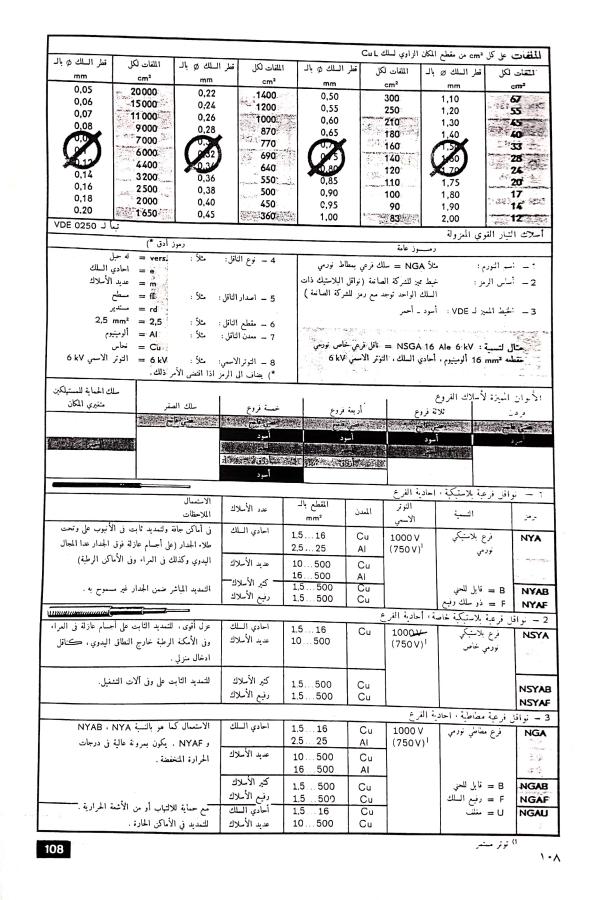 الملفات على كل cm² من مقطع المكان الراوي لسلك CuL
قطر السلك Ø بالـ mm | الملفات لكل cm² | قطر السلك Ø بالـ mm | الملفات لكل cm² | قطر السلك Ø بالـ mm | الملفات لكل cm² | قطر السلك Ø بالـ mm | الملفات لكل cm²
0,05 20000 0,22 1400 0,50 300 1,10 67
0,06 15000 0,24 1200 0,55 250 1,20 55
0,07 11000 0,26 1000 0,60 210 1,30 45
0,08 9000 0,28 870 0,65 180 1,40 40
7000 770 160 33
6000 690 140 28
4400 640 0,80 120 24
0,14 3200 0,36 550 0,85 110 1,75 20
0,16 2500 0,38 500 0,90 100 1,80 17
0,18 2000 0,40 450 0,95 90 1,90 14
0.20 1650 0,45 360 1,00 83 2,00 12
أسلاك التيار القوي المعزولة
تبعاً لـ VDE 0250
رمـــوز عامة
رموز أدق *)
مثلاً NGA = سلك فرعي بمطاط نورمي
2 – أساس الرمز : خيط مميز للشركة الصانعة (نوافل البلاستيك ذات
السلك الواحد توجد مع رمز للشركة الصانعة )
3 – الخيط المميز لـ VDE : أسود – أحمر
مثال لتسمية : NSGA 16 Ale 6 kV = ناقل فرعي خاص نورمي
مقطعه 16 mm² ألومنيوم ، أحادي السلك ، التوتر الاسمي 6 kV
4 – نوع الناقل : مثلاً : vers. =
e = احادي السلك
m = عديد الأسلاك
5 – اصدار الناقل : مثلاً : = مسطح
rd = مستدير
6 – مقطع الناقل : 2,5 = 2,5 mm²
7 – معدن الناقل : مثلاً : Al = ألومينيوم
Cu = نحاس
8 – التوتر الاسمي : مثلاً : 6 kV = التوتر الاسمي 6 kV
*) يضاف الى الرمز اذا اقتضى الأمر ذلك .
الألوان المميزة لأسلاك الفروع
ثلاثة فروع
أربعة فروع
خمسة فروع
سلك الصفر
سلك الحماية للمستهلكين
متغيري المكان
أسود
أسود
أسود
أسود
أسود
1 – نوافل فرعية بلاستيكية ، احادية الفرع
رمز | التسمية | التوتر الاسمي | المعدن | المقطع بالـ mm² | عدد الأسلاك | الاستعمال الملاحظات
NYA فرع بلاستيكي نورمي 1000 V (750 V)¹
Cu 1.5…16 احادي السلك
Al 2,5…25
Cu 10…500 عديد الأسلاك
Al 16…500
في أماكن جافة ولتمديد ثابت في الأنبوب على وتحت
طلاء الجدار (على أجسام عازلة فوق الجدار عدا المجال
اليدوي وكذلك في العراء وفي الأماكن الرطبة)
NYAB B = قابل للحي Cu 1.5…500 كثير الأسلاك
NYAF F = ذو سلك رفيع Cu 1.5…500 رفيع الأسلاك
التمديد المباشر ضمن الجدار غير مسموح به .
2 – نوافل فرعية بلاستيكية خاصة ، أحادية الفرع
NSYA فرع بلاستيكي نورمي خاص 1000V (750 V)¹
Cu 1.5…16 احادي السلك
10…500 عديد الأسلاك
عزل أقوى ، للتمديد الثابت على أجسام عازلة في العراء
وفي الأمكنة الرطبة خارج النطاق اليدوي ، كناقل
ادخال منزلي .
NSYAB Cu 1,5…500 كثير الأسلاك
NSYAF Cu 1.5…500 رفيع الأسلاك
للتمديد الثابت على وفي آلات التشغيل.
3 – نوافل فرعية مطاطية ، احادية الفرع
NGA فرع مطاطي نورمي 1000 V (750 V)¹
Cu 1.5…16 احادي السلك
Al 2.5…25
Cu 10…500 عديد الأسلاك
Al 16…500
الاستعمال كما هو بالنسبة NYA ، NYAB
و NYAF . يكون بمرونة عالية في درجات
الحرارة المنخفضة .
NGAB B = قابل للحي Cu 1.5…500 كثير الأسلاك
NGAF F = رفيع السلك Cu 1.5…500 رفيع الأسلاك
NGAU U = مغلف Cu 1,5…16 احادي السلك
Cu 10…500 عديد الأسلاك
مع حماية للالتهاب أو من الأشعة الحرارية .
للتمديد في الأماكن الحارة .
1) توتر مستمر
108
١٠٨